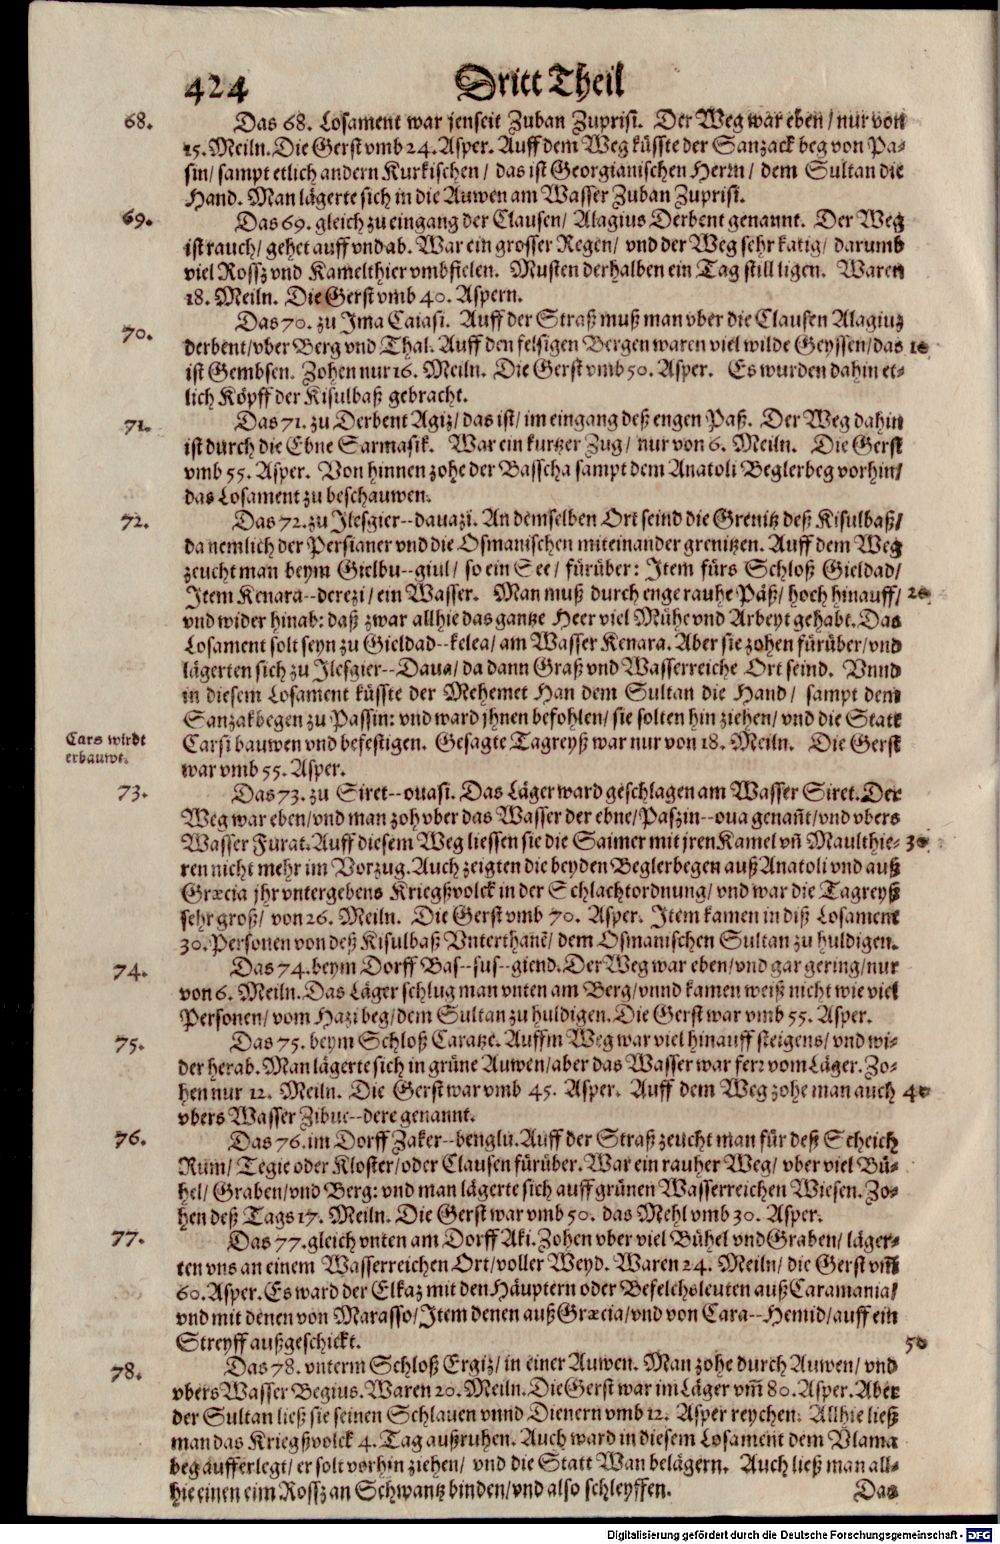 424 Dritt Theil
68. Das 68. Losament war jenseit Zuban Zuprisi. Der Weg war eben/ nur von
15. Meiln. Die Gerst vmb 24. Asper. Auff dem Weg küsste der Sanzack beg von Pa-
sin/ sampt etlich andern Kurkischen/ das ist Georgianischen Herrn/ dem Sultan die
Hand. Man lägerte sich in die Auwen am Wasser Zuban Zuprisi.
69. Das 69. gleich zu eingang der Clausen/ Alagius Derbent genannt. Der Weg
ist rauch/ gehet auff vnd ab. War ein grosser Regen/ vnd der Weg sehr katig/ darumb
viel Rossz vnd Kamelthier vmbfielen. Musten derhalben ein Tag still ligen. Waren
18. Meiln. Die Gerst vmb 40. Aspern.
70. Das 70. zu Ima Caiasi. Auff der Straß muß man vber die Clausen Alagiuz
derbent/ vber Berg vnd Thal. Auff den felsigen Bergen waren viel wilde Geyssen/ das 10
ist Gembsen. Zohen nur 16. Meiln. Die Gerst vmb 50. Asper. Es wurden dahin et-
lich Köpff der Kisulbaß gebracht.
71. Das 71. zu Derbent Agiz/ das ist/ im eingang deß engen Paß. Der Weg dahin
ist durch die Ebne Sarmasik. War ein kurtzer Zug/ nur von 6. Meiln. Die Gerst
vmb 55. Asper. Von hinnen zohe der Basscha sampt dem Anatoli Beglerbeg vorhin/
das Losament zu beschauwen.
72. Das 72. zu Ilesgier--dauazi. An demselben Ort seind die Grenitz deß Kisulbaß/
da nemlich der Persianer vnd die Osmanischen miteinander grenitzen. Auff dem Weg
zeucht man beym Gielbu--giul/ so ein See/ fürüber: Item fürs Schloß Gieldad/
Item Kenara--derezi/ ein Wasser. Man muß durch enge rauhe Päß/ hoch hinauff/ 20
vnd wider hinab: daß zwar allhie das gantze Heer viel Mühe vnd Arbeyt gehabt. Das
Losament solt seyn zu Gieldad--kelea/ am Wasser Kenara. Aber sie zohen fürüber/ vnd
lägerten sich zu Ilesgier--Daua/ da dann Graß vnd Wasserreiche Ort seind. Vnnd
in diesem Losament küsste der Mehemet Han dem Sultan die Hand/ sampt dem
Sanzakbegen zu Passin: vnd ward jhnen befohlen/ sie solten hin ziehen/ vnd die Statt
Cars wirdt
erbauwt.
Carsi bauwen vnd befestigen. Gesagte Tagreyß war nur von 18. Meiln. Die Gerst
war vmb 55. Asper.
73. Das 73. zu Siret--ouasi. Das Läger ward geschlagen am Wasser Siret. Der
Weg war eben/ vnd man zoh vber das Wasser der ebne/ Paszin--oua genañt/ vnd vbers
Wasser Furat. Auff diesem Weg liessen sie die Saimer mit jren Kamel vñ Maulthie- 30
ren nicht mehr im Vorzug. Auch zeigten die beyden Beglerbegen auß Anatoli vnd auß
Græcia jhr vntergebens Kriegßvolck in der Schlachtordnung/ vnd war die Tagreyß
sehr groß/ von 26. Meiln. Die Gerst vmb 70. Asper. Item kamen in diß Losament
30. Personen von deß Kisulbaß Vnterthanē/ dem Osmanischen Sultan zu huldigen.
74. Das 74. beym Dorff Bas--sus--giend. Der Weg war eben/ vnd gar gering/ nur
von 6. Meiln. Das Läger schlug man vnten am Berg/ vnnd kamen weiß nicht wie viel
Personen/ vom Hazi beg/ dem Sultan zu huldigen. Die Gerst war vmb 55. Asper.
75. Das 75. beym Schloß Caratze. Auffm Weg war viel hinauff steigens/ vnd wi-
der herab. Man lägerte sich in grüne Auwen/ aber das Wasser war ferr vom Läger. Zo-
hen nur 12. Meiln. Die Gerst war vmb 45. Asper. Auff dem Weg zohe man auch 40
vbers Wasser Zibuc--dere genannt.
76. Das 76. im Dorff Zaker--benglu. Auff der Straß zeucht man für deß Scheich
Rum/ Tegie oder Kloster/ oder Clausen fürüber. War ein rauher Weg/ vber viel Bü-
hel/ Graben/ vnd Berg: vnd man lägerte sich auff grünen Wasserreichen Wiesen. Zo-
hen deß Tags 17. Meiln. Die Gerst war vmb 50. das Mehl vmb 30. Asper.
77. Das 77. gleich vnten am Dorff Aki. Zohen vber viel Bühel vnd Graben/ läger-
ten vns an einem Wasserreichen Ort/ voller Weyd. Waren 24. Meiln/ die Gerst vm̃
60. Asper. Es ward der Elkaz mit den Häuptern oder Befelchsleuten auß Caramania/
vnd mit denen von Marasso/ Item denen auß Græcia/ vnd von Cara--Hemid/ auff ein
Streyff außgeschickt. 50
78. Das 78. vnterm Schloß Ergiz/ in einer Auwen. Man zohe durch Auwen/ vnd
vbers Wasser Begius. Waren 20. Meiln. Die Gerst war im Läger vm̃ 80. Asper. Aber
der Sultan ließ sie seinen Schlauen vnnd Dienern vmb 12. Asper reychen. Allhie ließ
man das Kriegßvolck 4. Tag außruhen. Auch ward in diesem Losament dem Vlama
beg aufferlegt/ er solt vorhin ziehen/ vnd die Statt Wan belägern. Auch ließ man all-
hie einen eim Rossz an Schwantz binden/ vnd also schleyffen. Das
Digitalisierung gefördert durch die Deutsche Forschungsgemeinschaft - DFG